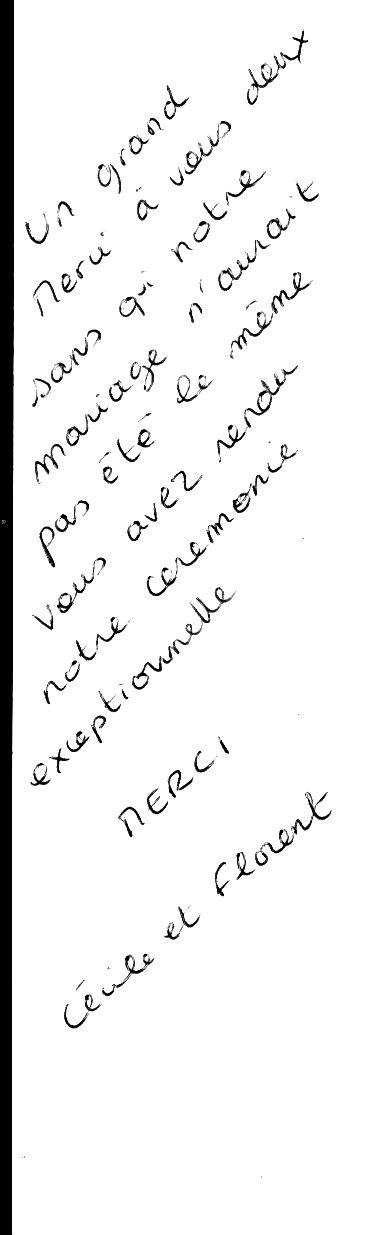 Un grand
Merci à vous deux
sans qui notre
mariage n'aurait
pas été le même
vous avez rendu
notre ceremonie
exceptionnelle
MERCI
Cécile et Florent